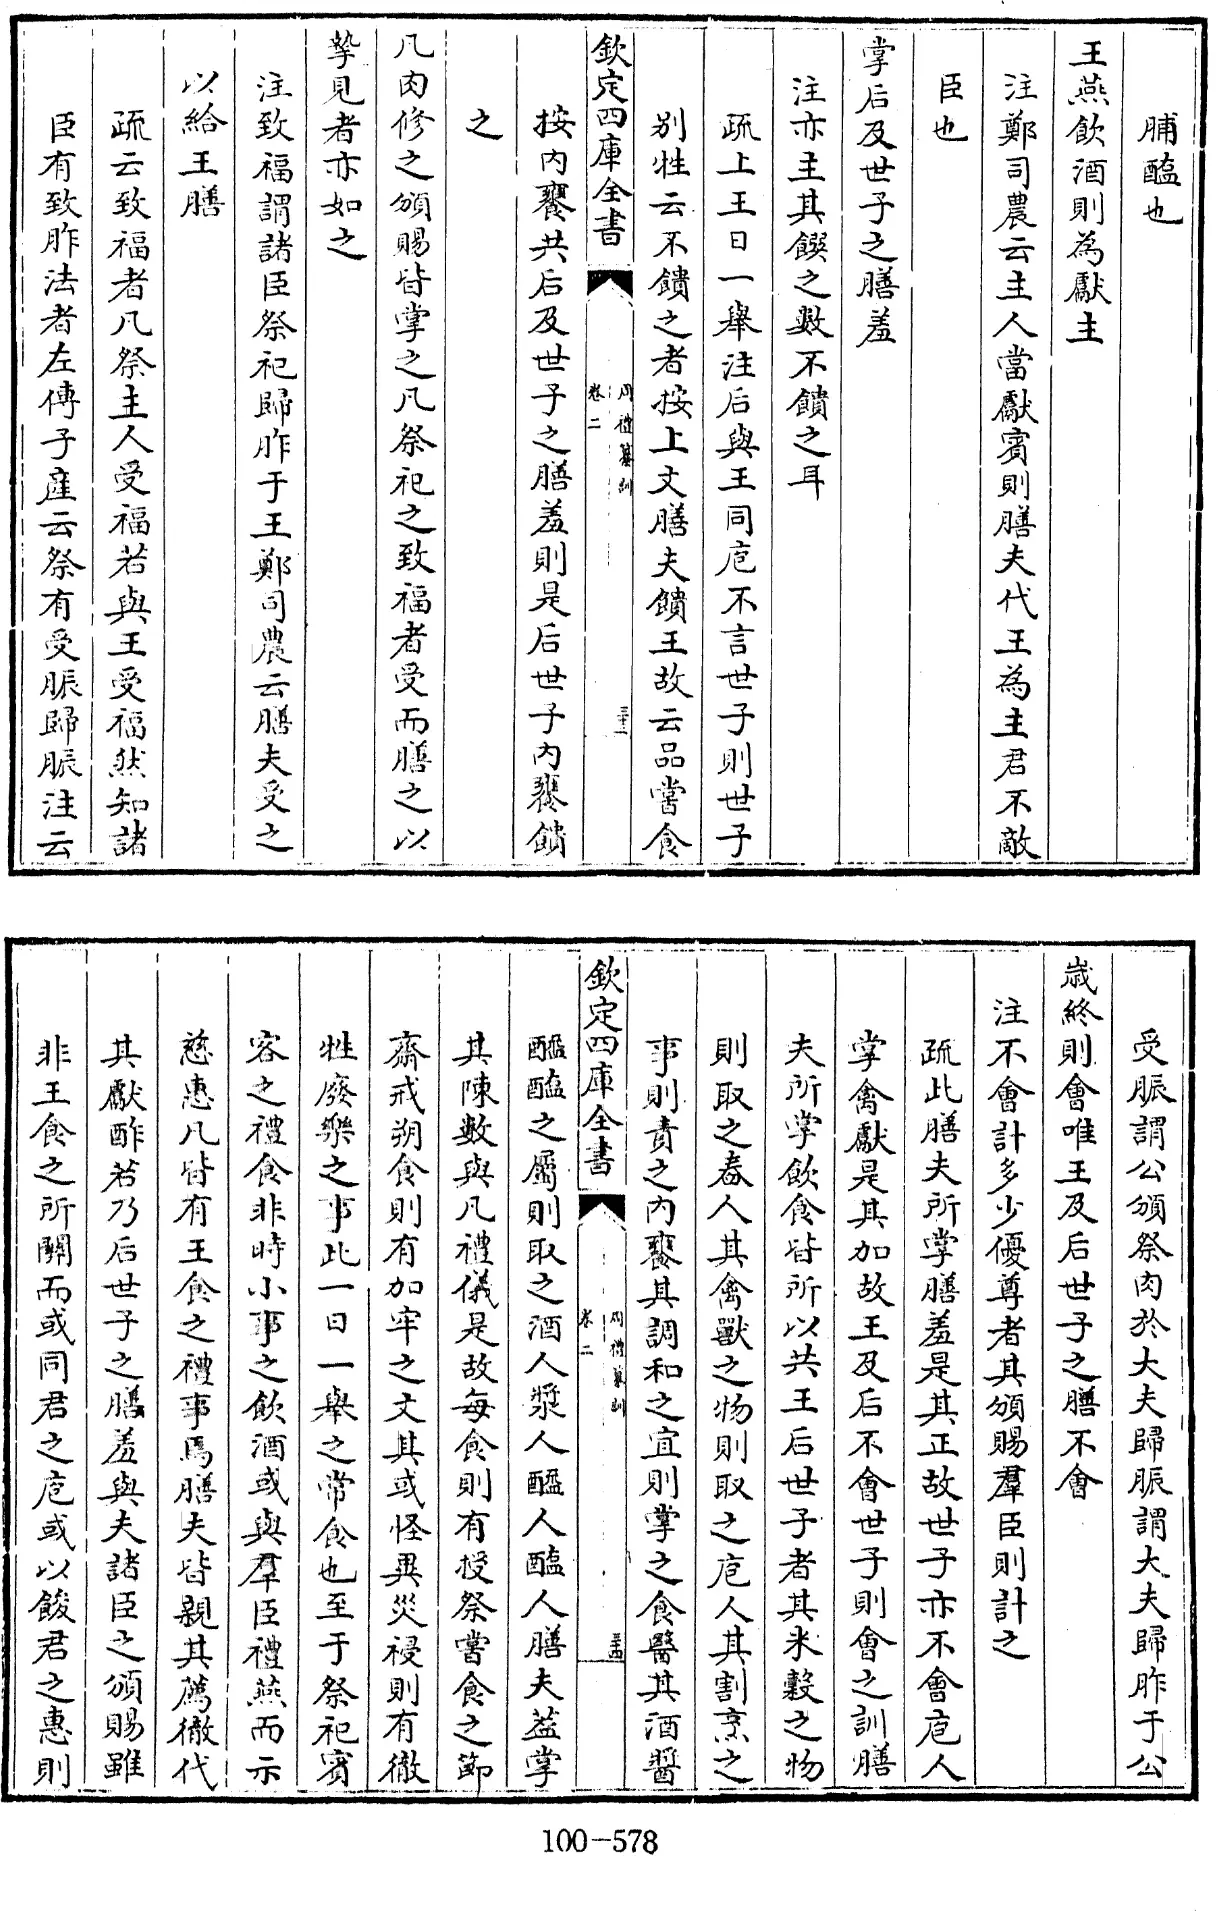 脯醢也
王燕飲酒則為獻主
注鄭司農云主人當獻賓則膳夫代王為主君不敵
臣也
掌后及世子之膳羞
注亦主其饌之數不饋之耳
疏上王日一舉注后與王同庖不言世子則世子
别牲云不饋之者按上文膳夫饋王故云品嘗食
欽定四庫全書
周禮纂訓
卷二
三十三
按内饔共后及世子之膳羞則是后世子内饔饋
之
凡肉修之頒賜皆掌之凡祭祀之致福者受而膳之以
摯見者亦如之
注致福謂諸臣祭祀歸胙于王鄭司農云膳夫受之
以給王膳
疏云致福者凡祭主人受福若與王受福然知諸
臣有致胙法者左傳子産云祭有受脤歸脤注云
受脤謂公頒祭肉於大夫歸脤謂大夫歸胙于公
歲終則會唯王及后世子之膳不會
注不會計多少優尊者其頒賜羣臣則計之
疏此膳夫所掌膳羞是其正故世子亦不會庖人
掌禽獻是其加故王及后不會世子則會之訓膳
夫所掌飲食皆所以共王后世子者其米穀之物
則取之舂人其禽獸之物則取之庖人其割烹之
事則責之内饔其調和之宜則掌之食醫其酒醬
欽定四庫全書
周禮纂訓
卷二
三十四
醯醢之屬則取之酒人漿人醯人醢人膳夫蓋掌
其陳數與凡禮儀是故每食則有授祭嘗食之節
齋戒朔食則有加牢之文其或怪異災祲則有徹
牲廢樂之事此一日一舉之常食也至于祭祀賓
客之禮食非時小事之飲酒或與羣臣禮燕而示
慈惠凡皆有王食之禮事焉膳夫皆親其薦徹代
其獻酢若乃后世子之膳羞與夫諸臣之頒賜雖
非王食之所關而或同君之庖或以餕君之惠則
100-578